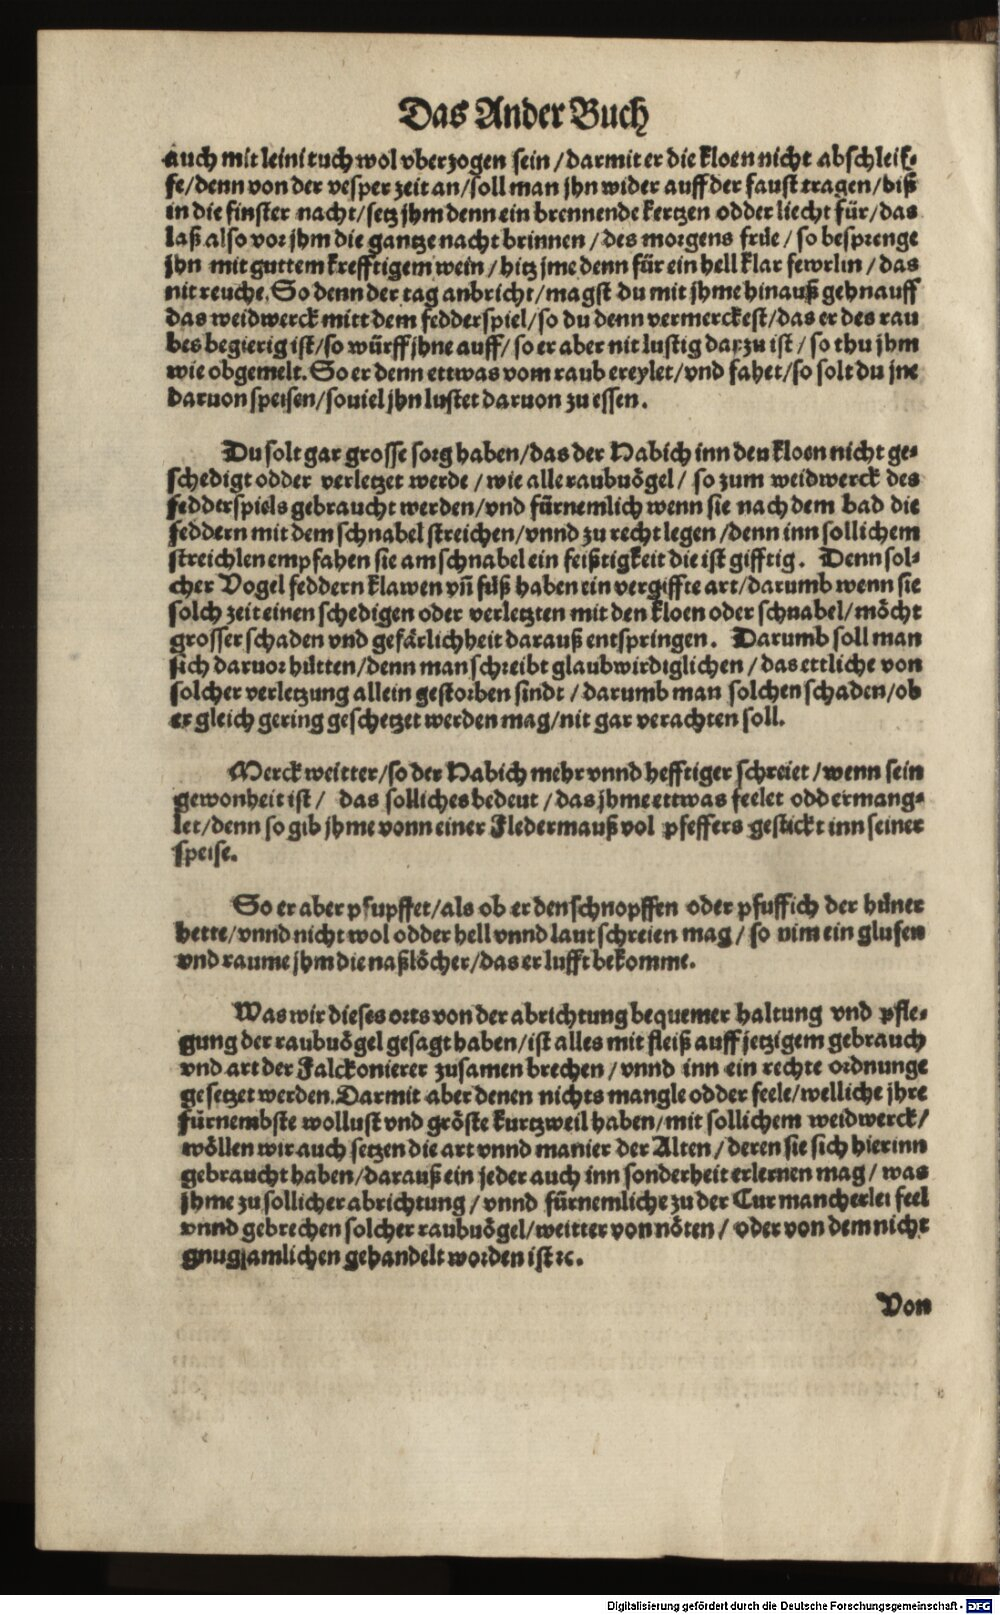 Das Ander Buch
auch mit leini tuch wol vberzogen sein / darmit er die kloen nicht abschleif-
fe / denn von der vesper zeit an / soll man jhn wider auff der faust tragen / biß
in die finster nacht / setz jhm denn ein brennende kertzen odder liecht für / das
laß also vor jhm die gantze nacht brinnen / des morgens früe / so besprenge
jhn mit guttem krefftigem wein / hitz jme denn für ein hell klar fewrlin / das
nit reuche. So denn der tag anbricht / magst du mit jhme hinauß gehn auff
das weidwerck mitt dem fedderspiel / so du denn vermerckest / das er des rau
bes begierig ist / so würff jhne auff / so er aber nit lustig darzu ist / so thu jhm
wie obgemelt. So er denn ettwas vom raub ereylet / vnd fahet / so solt du jne
daruon speisen / souiel jhn lustet daruon zu essen.
Du solt gar grosse sorg haben / das der Habich inn den kloen nicht ge-
schedigt odder verletzet werde / wie alle raubuögel / so zum weidwerck des
fedderspiels gebraucht werden / vnd fürnemlich wenn sie nach dem bad die
feddern mit dem schnabel streichen / vnnd zu recht legen / denn inn sollichem
streichlen empfahen sie am schnabel ein feißtigkeit die ist gifftig. Denn sol-
cher Vogel feddern klawen vñ füß haben ein vergiffte art / darumb wenn sie
solch zeit einen schedigen oder verletzten mit den kloen oder schnabel / möcht
grosser schaden vnd gefärlichheit darauß entspringen. Darumb soll man
sich daruor hütten / denn man schreibt glaubwirdiglichen / das ettliche von
solcher verletzung allein gestorben sindt / darumb man solchen schaden / ob
er gleich gering geschetzet werden mag / nit gar verachten soll.
Merck weitter / so der Habich mehr vnnd hefftiger schreiet / wenn sein
gewonheit ist / das solliches bedeut / das jhme ettwas feelet odder mang-
let / denn so gib jhme vonn einer Fledermauß vol pfeffers gestickt inn seiner
speise.
So er aber pfupffet / als ob er den schnopffen oder pfuffich der hüner
hette / vnnd nicht wol odder hell vnnd laut schreien mag / so nim ein glufen
vnd raume jhm die naßlöcher / das er lufft bekomme.
Was wir dieses orts von der abrichtung bequemer haltung vnd pfle-
gung der raubuögel gesagt haben / ist alles mit fleiß auff jetzigem gebrauch
vnd art der Falckonierer zusamen brechen / vnnd inn ein rechte ordnunge
gesetzet werden. Darmit aber denen nichts mangle odder feele / welliche jhre
fürnembste wollust vnd gröste kurtzweil haben / mit sollichem weidwerck /
wöllen wir auch setzen die art vnnd manier der Alten / deren sie sich hierinn
gebraucht haben / darauß ein jeder auch inn sonderheit erlernen mag / was
jhme zu sollicher abrichtung / vnnd fürnemliche zu der Cur mancherlei feel
vnnd gebrechen solcher raubuögel / weitter von nöten / oder von dem nicht
gnugsamlichen gehandelt worden ist ꝛc.
Von
Digitalisierung gefördert durch die Deutsche Forschungsgemeinschaft - DFG